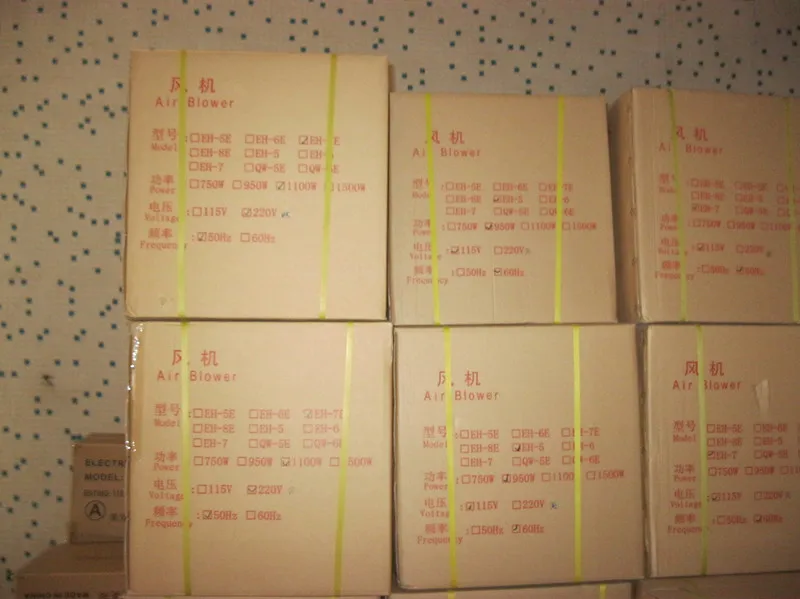 风机
Air Blower
型号 :☐EH-5E ☐EH-6E ☑EH-7E
Model ☐EH-8E ☐EH-5 ☐EH-6
☐EH-7 ☐QW-5E ☐QW-6E
功率 :☐750W ☐950W ☑1100W ☐1500W
Power
电压 :☐115V ☑220V
Voltage
频率 :☑50Hz ☐60Hz
Frequency
风机
Air Blower
型号 :☐EH-5E ☐EH-6E ☐EH-7E
Model ☐EH-8E ☑EH-5 ☐EH-6
☐EH-7 ☐QW-5E ☐QW-6E
功率 :☐750W ☑950W ☐1100W ☐1500W
Power
电压 :☑115V ☐220V
Voltage
频率 :☐50Hz ☑60Hz
Frequency
风机
Air Blower
型号 :☐EH-5E ☐EH-6E
Model ☐EH-8E ☐EH-5
☑EH-7 ☐QW-5E
功率 :☐750W ☐950W
Power
电压 :☑115V ☐220V
Voltage
频率 :☐50Hz ☑60Hz
Frequency
风机
Air Blower
型号 :☐EH-5E ☐EH-6E ☑EH-7E
Model ☐EH-8E ☐EH-5 ☐EH-6
☐EH-7 ☐QW-5E ☐QW-6E
功率 :☐750W ☐950W ☑1100W ☐1500W
Power
电压 :☐115V ☑220V
Voltage
频率 :☑50Hz ☐60Hz
Frequency
风机
Air Blower
型号 :☐EH-5E ☐EH-6E ☐EH-7E
Model ☐EH-8E ☑EH-5 ☐EH-6
☐EH-7 ☐QW-5E ☐QW-6E
功率 :☐750W ☑950W ☐1100W ☐1500W
Power
电压 :☑115V ☐220V
Voltage
频率 :☐50Hz ☑60Hz
Frequency
风机
Air Blower
型号 :☐EH-5E ☐EH-6E
Model ☐EH-8E ☐EH-5
☑EH-7 ☐QW-5E
功率 :☐750W ☐950W
Power
电压 :☑115V ☐220V
Voltage
频率 :☐50Hz ☑60Hz
Frequency
ELECTR
MODEL:
A